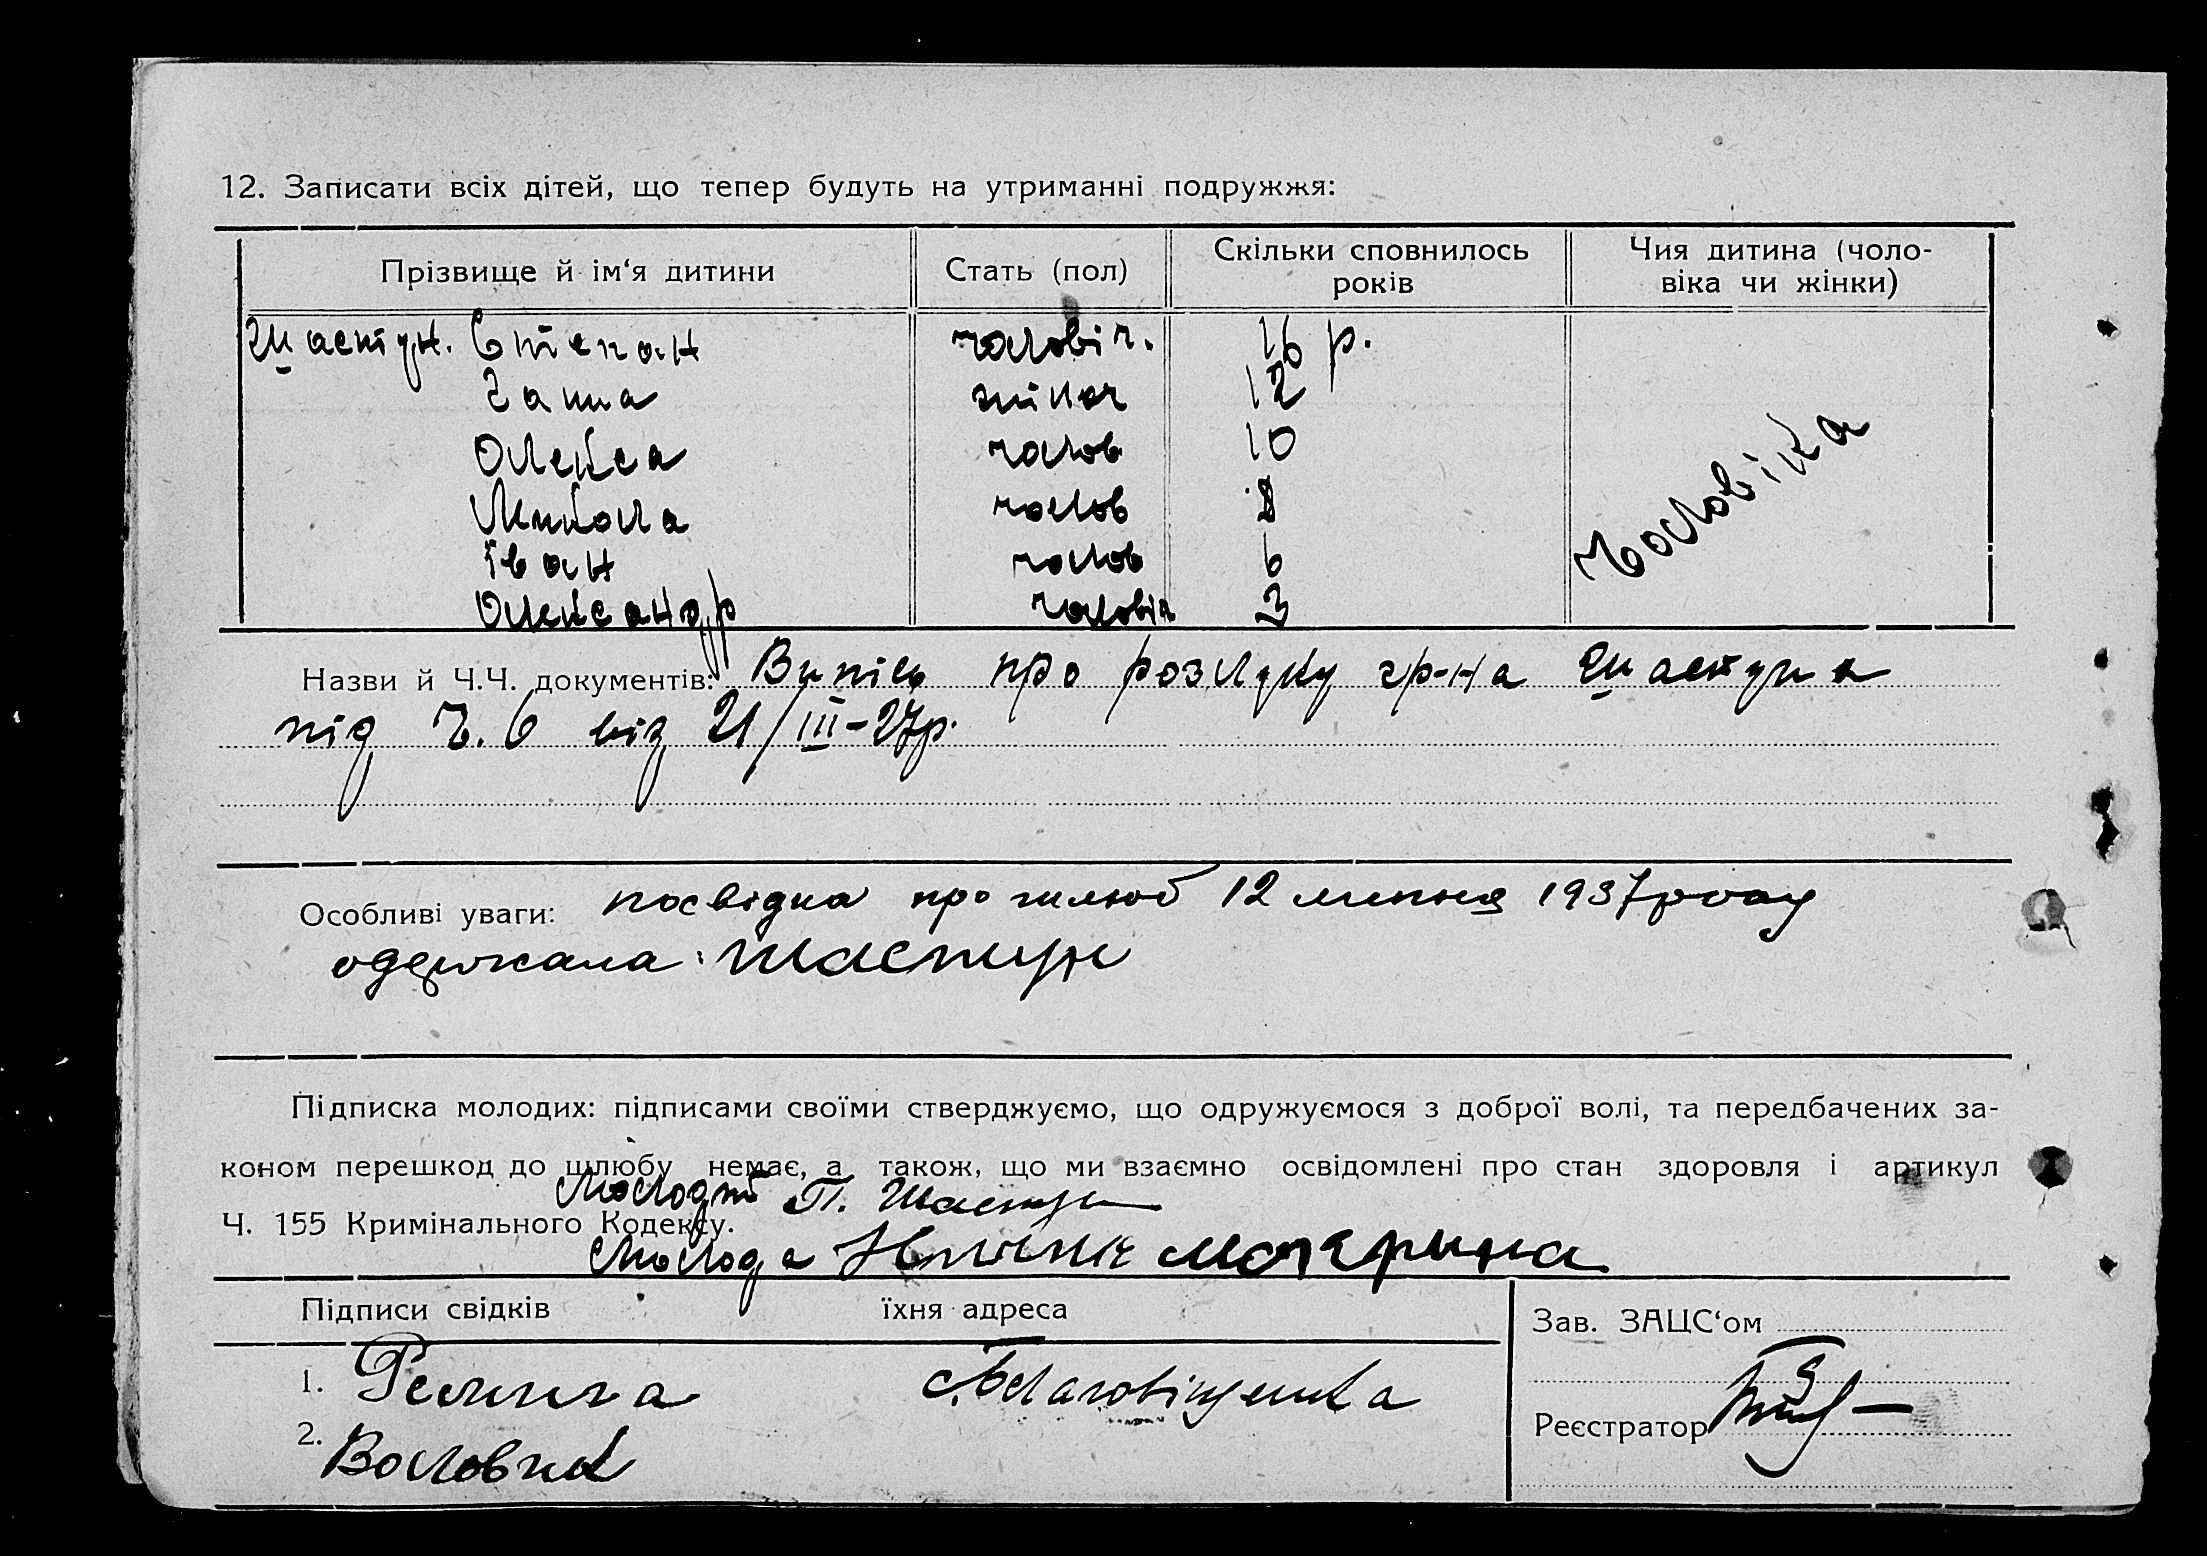 12. Записати всіх дітей, що тепер будуть на утриманні подружжя:
Прізвище й ім‘я дитини Стать (пол) Скільки сповнилось років Чия дитина (чоловіка чи жінки)
Шастун. Степан чоловіч. 16 р.
Ганна жіноч 12
Олекса чолов 10
Микола чолов 8
Іван чолов 6
Олександр чоловіч 3
Чоловіка
Назви й Ч.Ч. документів: Випісь про розлуку гр-на Шастуна
під Ч. 6 від 21/III-27р.
Особливі уваги: посвідка про шлюб 12 липня 1937 року
одержала: Шастун
Підписка молодих: підписами своїми стверджуємо, що одружуємося з доброї волі, та передбачених за-
коном перешкод до шлюбу немає, а також, що ми взаємно освідомлені про стан здоровля і артикул
Ч. 155 Кримінального Кодексу.
Молодий П. Шастун
Молода
Підписи свідків їхня адреса
Зав. ЗАЦС‘ом
1.
с. Благовіщенка
2. Воловик
Реєстратор